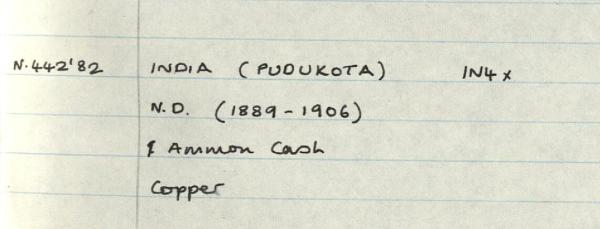 N.442'82 INDIA (PUDUKOTA) IN4 x
N.D. (1889-1906)
1 Ammon Cash
Copper